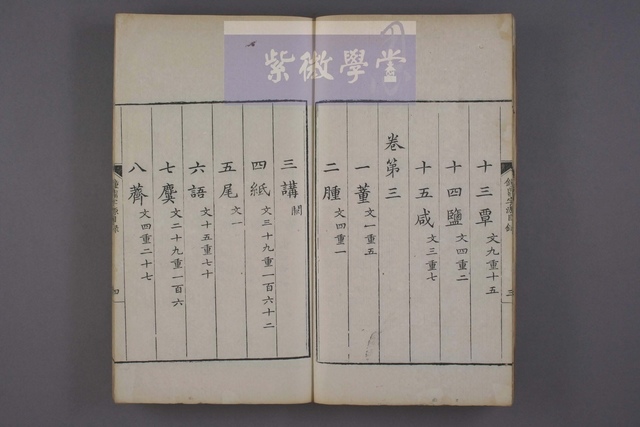 紫微學堂
十三覃 文九重十五
十四鹽 文四重二
十五咸 文三重七
卷第三
一董 文一重五
二腫 文四重一
三講 闕
四紙 文三十九重一百六十二
五尾 文一
六語 文十五重七十
七麌 文二十九重一百六
八薺 文四重二十七
三
四